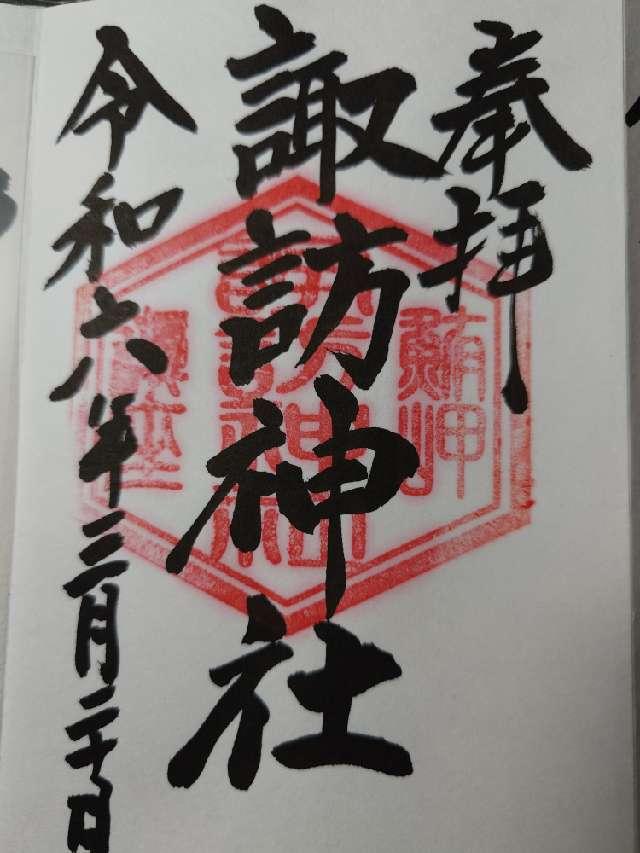 奉拝
諏訪神社
令和六年三月二十日
鮪岬
諏訪神社
鎮座